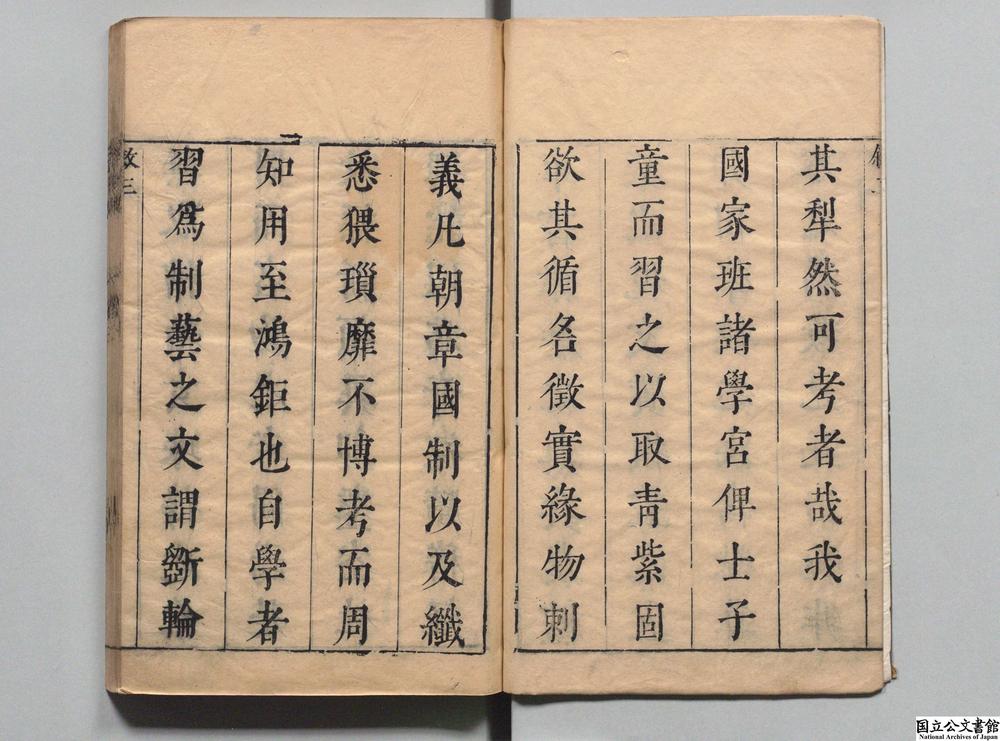 其犁然可考者哉我
國家班諸學宮俾士子
童而習之以取青紫固
欲其循名徵實緣物刺
義凡朝章國制以及纖
悉猥瑣靡不博考而周
知用至鴻鉅也自學者
習爲制藝之文謂斲輪
国立公文書館
National Archives of Japan